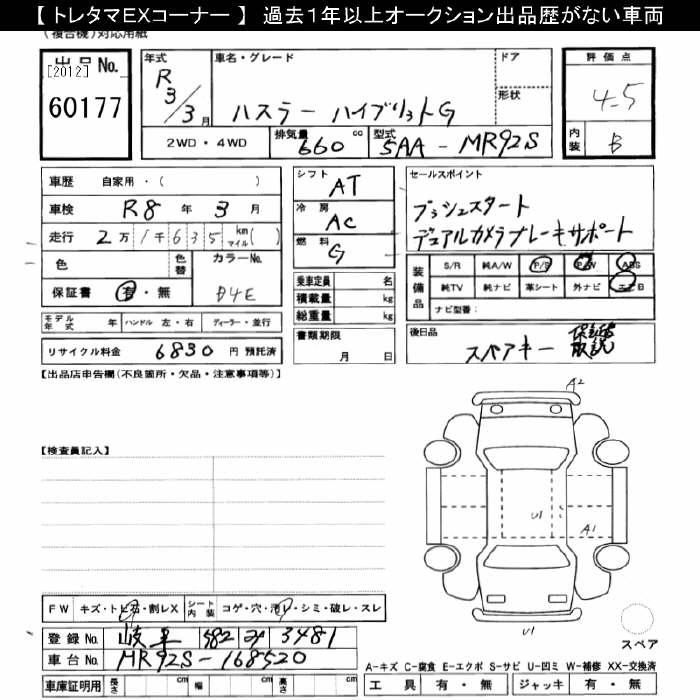 【 トレタマEXコーナー 】 過去1年以上オークション出品歴がない車両
(複合機)対応用紙
出品No.
[2012]
60177
年式
R 3/3月
車名・グレード
ハスラー ハイブリットG
ドア
形状
評価点
4-5
内装 B
2WD・4WD
排気量 660 cc
型式 5AA-MR92S
車歴 自家用・( )
車検 R8 年 3 月
走行 2万1千635 km マイル( )
色
色替
カラーNo.
保証書 有・無
B4E
モデル年式 年
ハンドル 左・右
ディーラー・並行
リサイクル料金 6830 円 預託済
シフト AT
冷房 AC
燃料 G
乗車定員 名
積載量 kg
総重量 kg
書類期限
月 日
セールスポイント
プッシュスタート
デュアルカメラブレーキサポート
装備品
S/R 純A/W P/S P/W ABS
純TV 純ナビ 革シート 外ナビ エアB
ナビ型番:
後日品
スペアキー 保証書 取説
【出品店申告欄(不良箇所・欠品・注意事項等)】
【検査員記入】
A2
U1
A1
U1
スペア
FW キズ・トビ石・割レX
シート内装 コゲ・穴・汚レ・シミ・破レ・スレ
登録No. 岐阜 582 み 3481
車台No. MR92S-168520
車庫証明用 長さ cm 幅 cm 高さ cm
A-キズ C-腐食 E-エクボ S-サビ U-凹ミ W-補修 XX-交換済
工具 有・無 ジャッキ 有・無